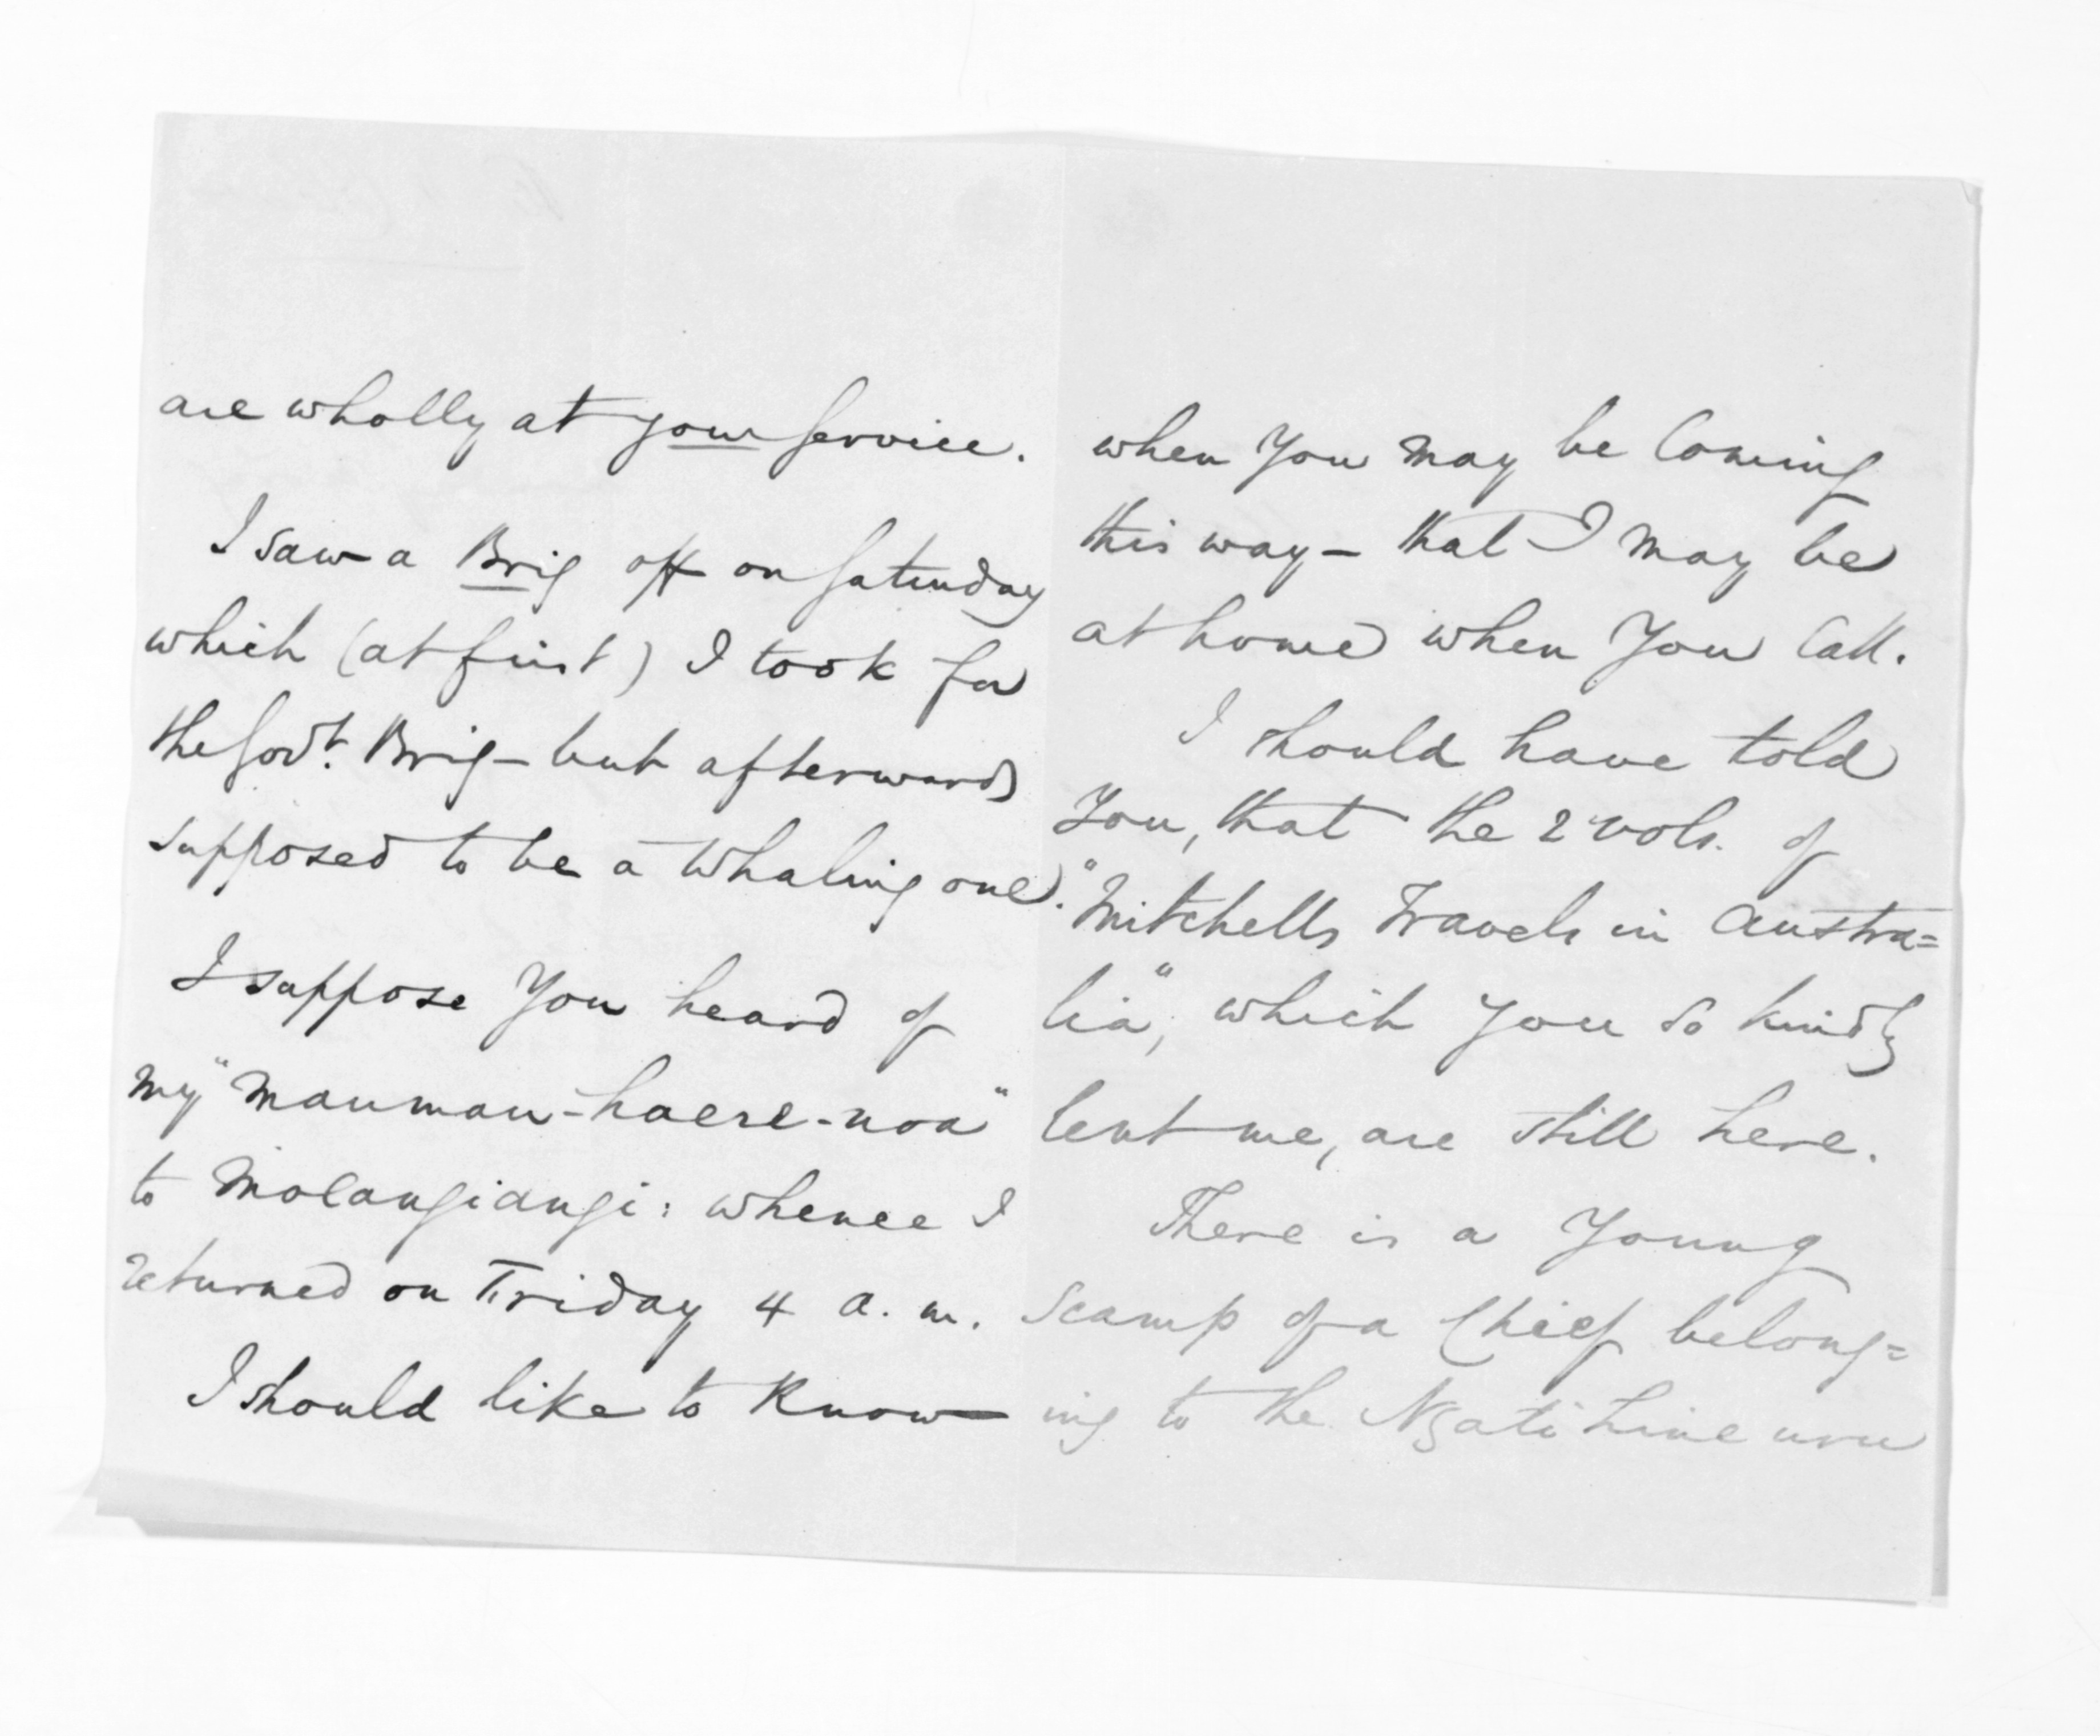 are wholly at your service.
I saw a Brig off on Saturday
which (at first) I took for
the Govt. Brig – but afterwards
supposed to be a Whaling one.
I suppose You heard of
my "maumau-haere-noa"
to Moeangiangi: whence I
returned on Friday 4 a.m.
I should like to Know
when You may be Coming
this way – that I may be
at home when You Call.
I should have told
You, that the 2 vols. of
"Mitchells Travels in Austra=
lia", which You so kindly
lent me, are still here.
There is a Young
scamp of a Chief belong=
ing to the Ngati hine uru